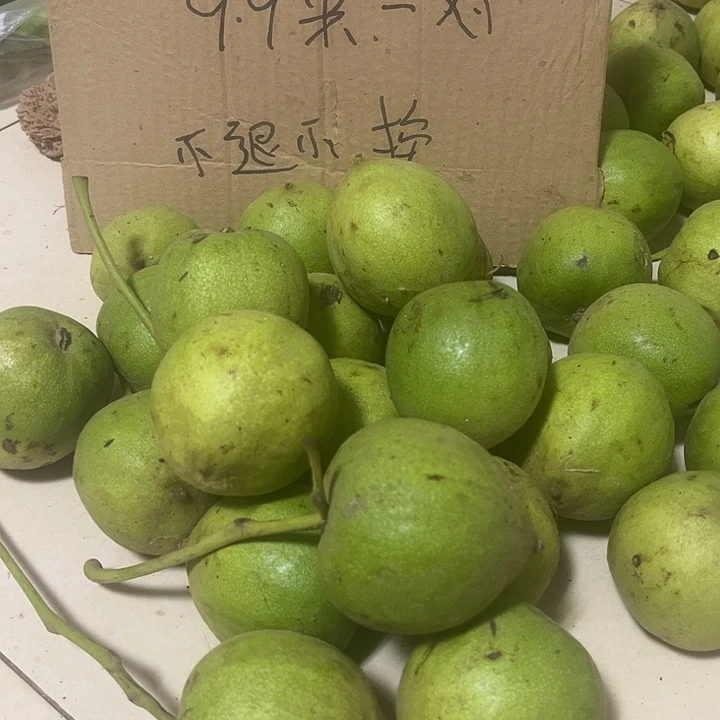 9.9米一对
不退不换